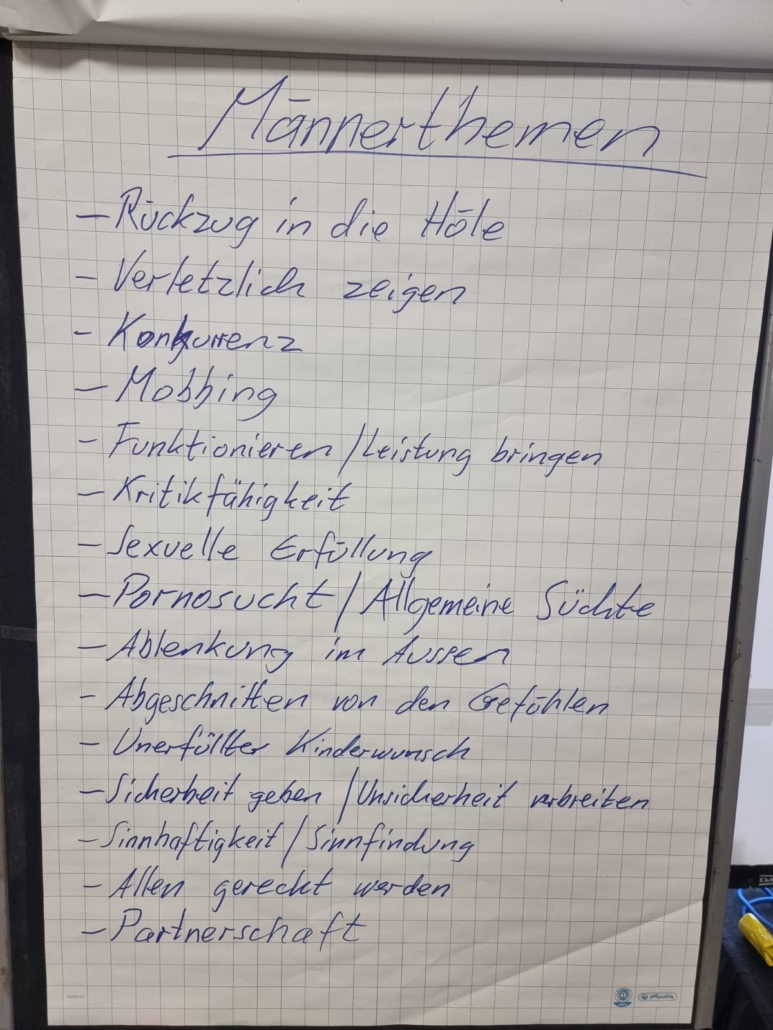 Männerthemen
– Rückzug in die Höle
– Verletzlich zeigen
– Konkurrenz
– Mobbing
– Funktionieren / Leistung bringen
– Kritikfähigkeit
– Sexuelle Erfüllung
– Pornosucht / Allgemeine Süchte
– Ablenkung im Aussen
– Abgeschnitten von den Gefühlen
– Unerfüllter Kinderwunsch
– Sicherheit geben / Unsicherheit verbreiten
– Sinnhaftigkeit / Sinnfindung
– Allen gerecht werden
– Partnerschaft